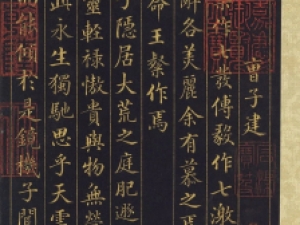 曹子建
作七發傅毅作七激
辭各美麗余有慕之焉
命王粲作焉
子隱居大荒之庭肥遯
靈輕祿傲貴與物無營
真永生獨馳思乎天雲
而能傾於是鏡機子聞